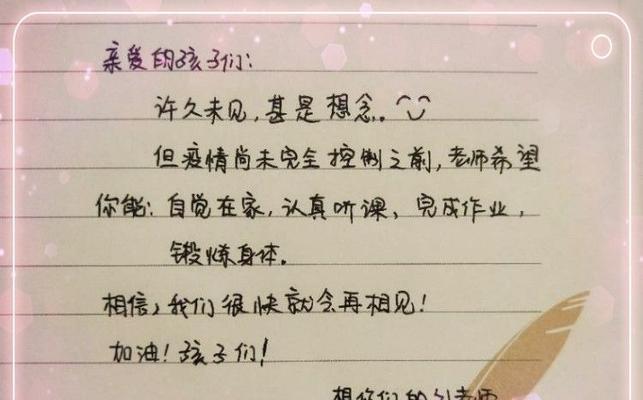 亲爱的孩子们：
许久未见，甚是想念。
但疫情尚未完全控制之前，老师希望
你能：自觉在家，认真听课、完成作业，
锻炼身体。
相信，我们很快就会再相见！
加油！孩子们！
想你们的刘老师